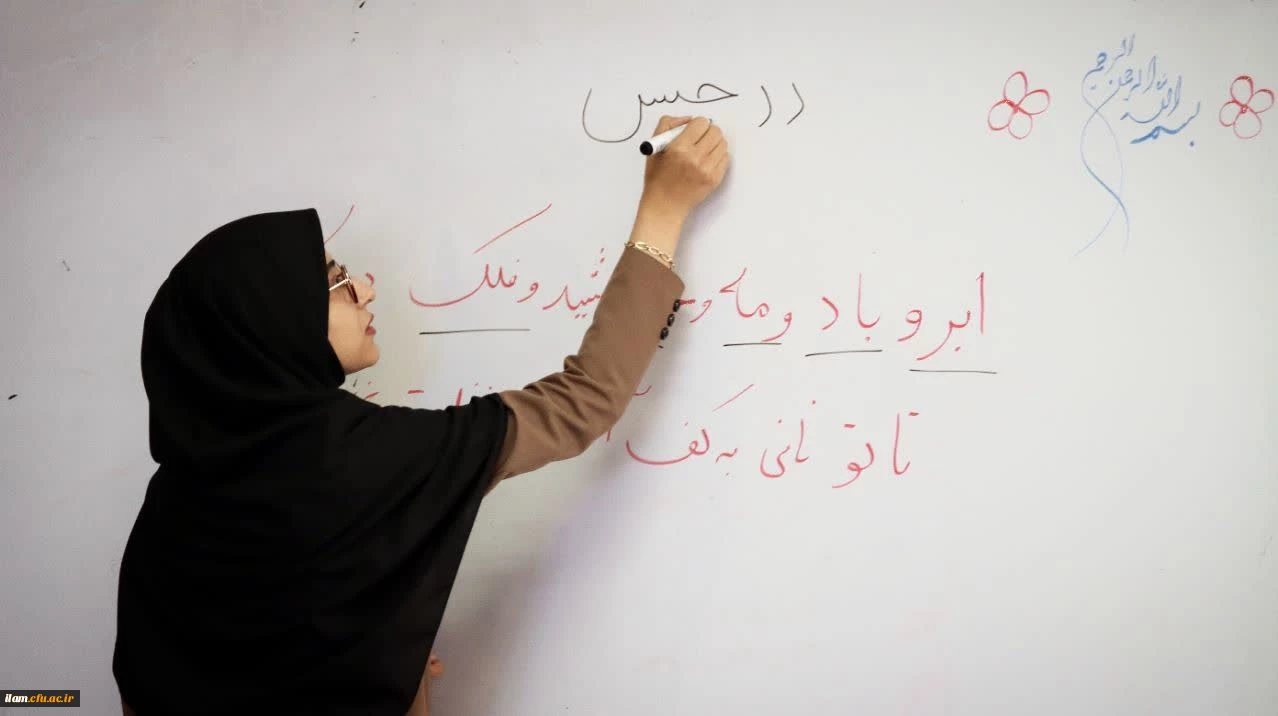 بسم الله الرحمن الرحیم
حس
ابر و باد و مه و شید و فلک
تا تو نانی به کف
ilam.cfu.ac.ir